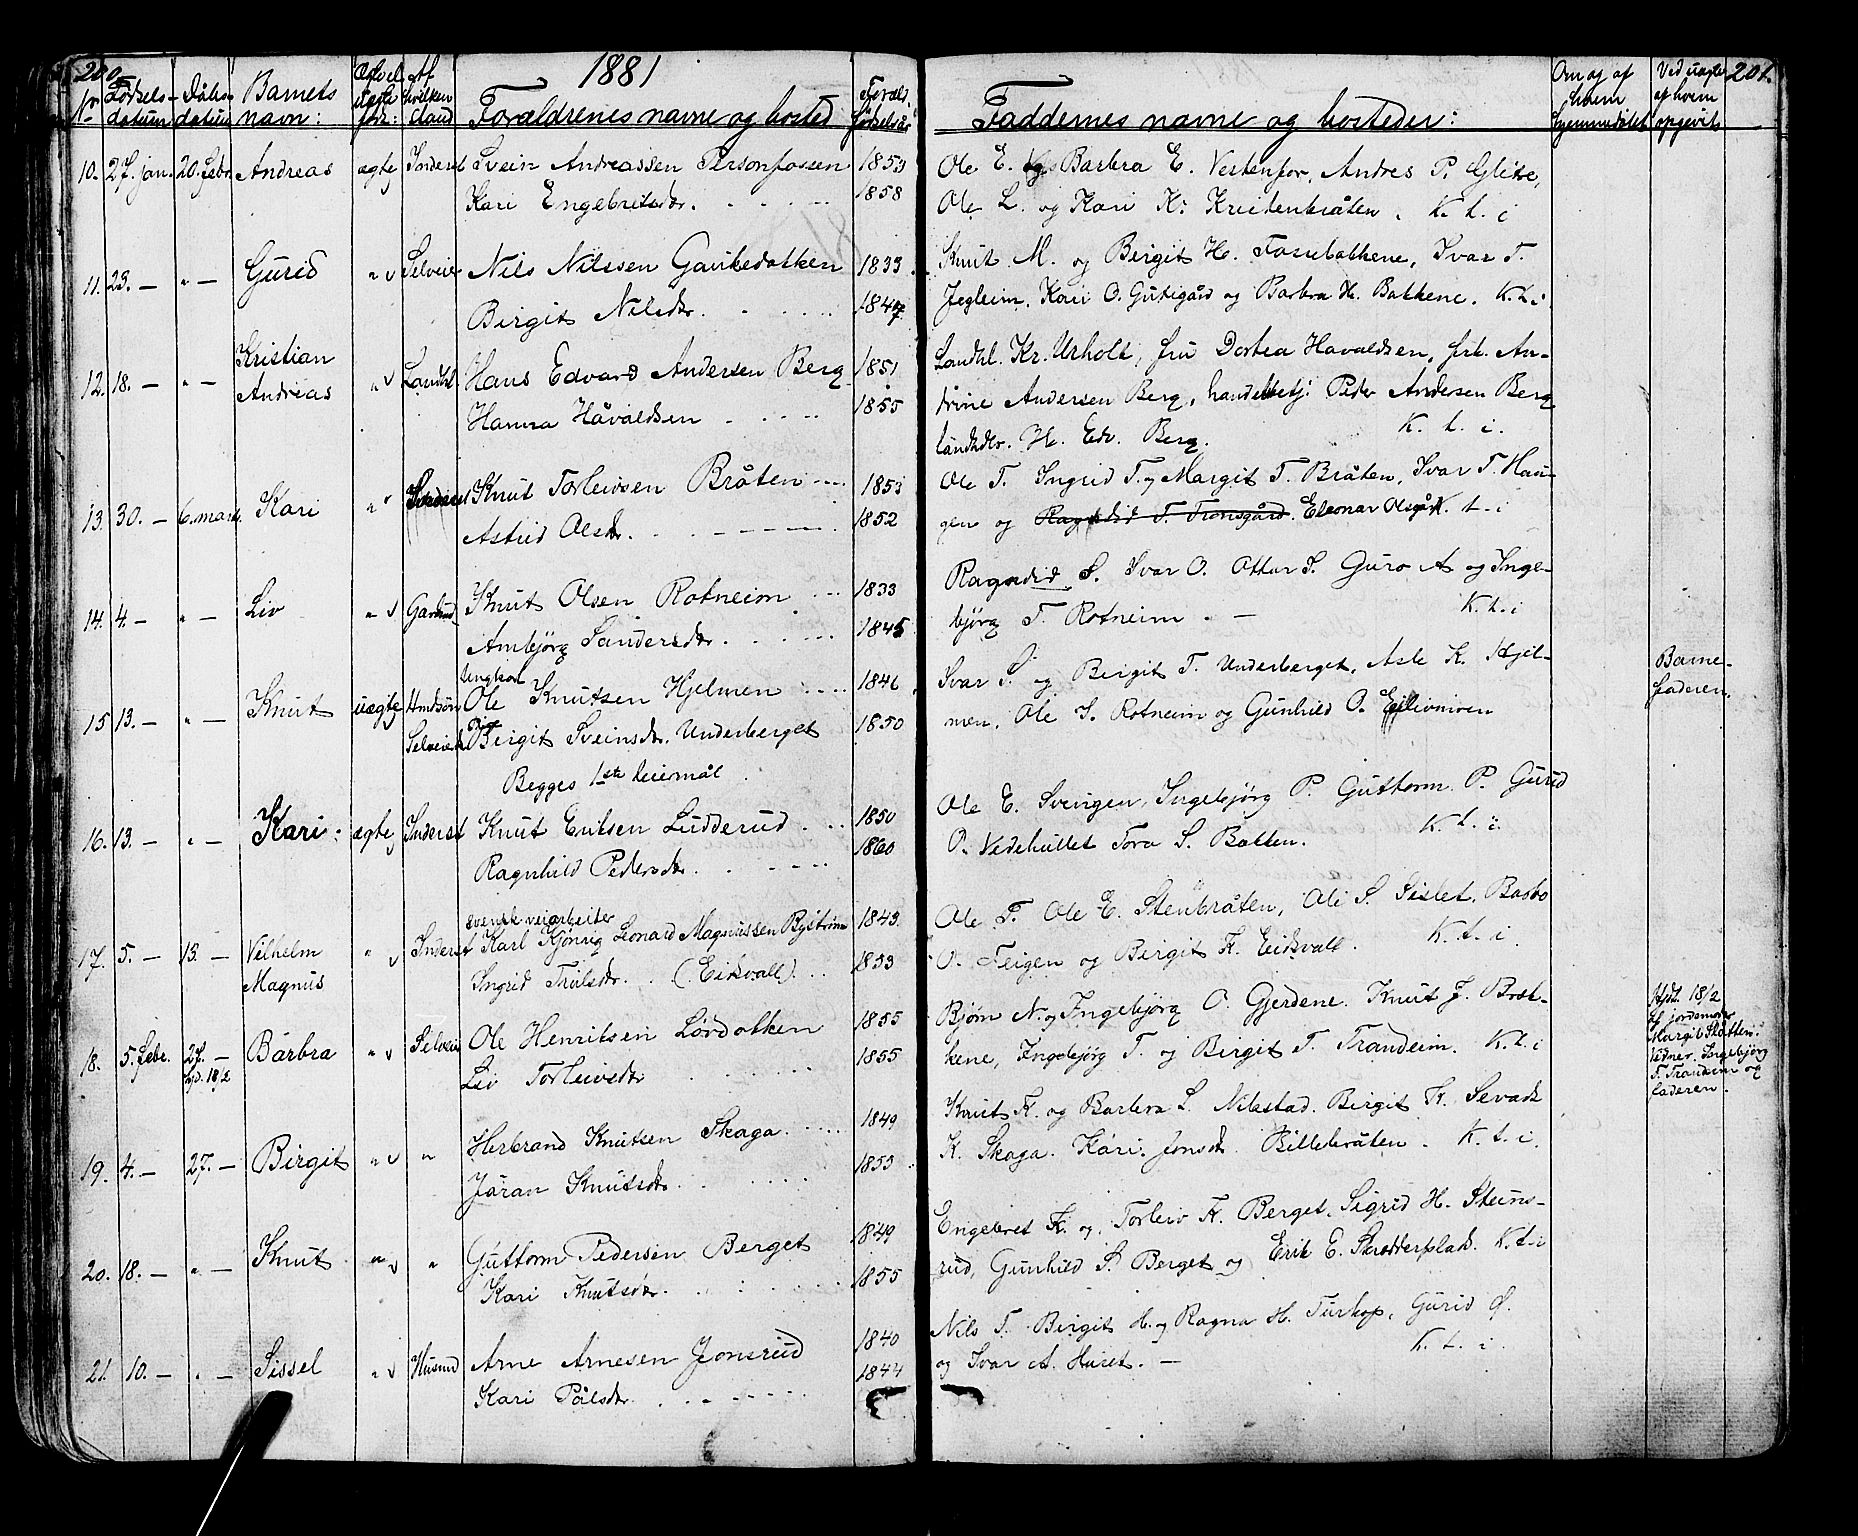 200.
1881
201.
Nr. Fødsels- datum Dåbs- datum Barnets navn: Af hvilken stand Forældrenes navne og bosted Foræld. fødselsår Faddernes navne og bosteder: Om og af hvem hjemmedøbt Ved uægte af hvem opgivet
10. 27. jan. 20. febr. Andreas ægte Inderst Svein Andreassen Personfossen 1853 Ole E. og Barbra E. Vestenfor, Andres P. Glitre,
Kari Engebretsdr. 1858 Ole L. og Kari K. Kristenbråten. K. t. i
11. 23. — " — Gurid " Selveier Nils Nilssen Gaukedokken 1833 Knut M. og Birgit H. Fosebakkene, Ivar T.
Birgit Nilsdr. 1847 Jegleim, Kari O. Gutigård og Barbra H. Bakkene. K. t. i
12. 18. — " — Kristian Andreas " Landhl. Hans Edvard Andersen Berg 1851 Landhl. Kr. Urholt, fru Dortea Havaldsen, frk. An-
Hanna Håvaldsen 1855 trine Andersen Berg, handelsbetj. Peder Andersen Berg
landhdlr. H. Edv. Berg. K. t. i.
13. 30. — 6. mars. Kari " Inderst Knut Torleivsen Bråten 1853 Ole T. Ingrid T. og Margit T. Bråten, Ivar T. Hau-
Astrid Olsdr. 1852 gen og Ragndid T. Tronsgård. Eleonar Olsgård K. t. i
14. 4. — " — Liv " Gardbrd. Knut Olsen Rotneim 1833 Ragndid S. Ivar O. Ottar S. Guro A og Inge-
Ambjörg Sandersdr. 1845 björg T. Rotneim. — K. t. i
15 13. — " — Knut uægte Ungkarl Ole Knutsen Hjelmen 1846 Ivar S. og Birgit T. Underberget, Asle K. Hjel- Barne-
Selveierd. Pige Birgit Sveinsdr. Underberget 1850 men, Ole S. Rotneim og Gunhild O. faderen.
Begges 1ste leiermål
16. 13. — " — Kari: ægte Inderst Knut Eriksen Ludderud 1850 Ole E. Svengen, Ingebjörg P. Guttorm P. Gurid
Ragnhild Pedersdr. 1860 O. Vedehullet Tora S. Bakken. K. t. i.
17. 5. — 13. — Vilhelm Magnus " Inderst svensk veiarbeiter
Karl Leonard Magnussen Byström 1843 Ole T. Ole E. Stenbråten, Ole S. Sislet, Barbo
Ingrid Trulsdr. (Eikvall) 1853 O. Feigen og Birgit K. Eikvall. K. t. i.
18. 5. febr. 27. — hjd. 18/2 Barbra " Selveier Ole Henriksen Lørdokken 1855 Bjørn N. og Ingebjörg O. Gjerdene. Knut J. Brek- Hjdt. 18/2
Liv Torleivsdr 1855 kene, Ingebjörg T. og Birgit T. Trandeim. K. t. i af jordemoder
Margit Skøtten:
Vidner. Ingebjörg
T. Trandeim og
faderen.
19. 4. — 27. — Birgit " " Herbrand Knutsen Skaga 1849 Knut K. og Barbra L. Nilsstad. Birgit K. Sevads
Jøran Knutsdr. 1853 K. Skaga. Kari Jonsdr. Billebråten. K. t. i.
20. 18. — " — Knut " " Guttorm Pedersen Berget 1849 Engebret K. og Torleiv K. Berget. Sigrid H. Stuns-
Kari Knutsdr. 1855 rud, Gunhild S. Berget og Erik E. Skrædderplads. K. t. i
21. 10. — " — Sissel " Husmd Arne Arnesen Jonsrud 1840 Nils T. Birgit H. og Ragna H. Turhop, Gurid Ø.
Kari Pålsdr. 1844 og Ivar A. Huset. — K. t. i.